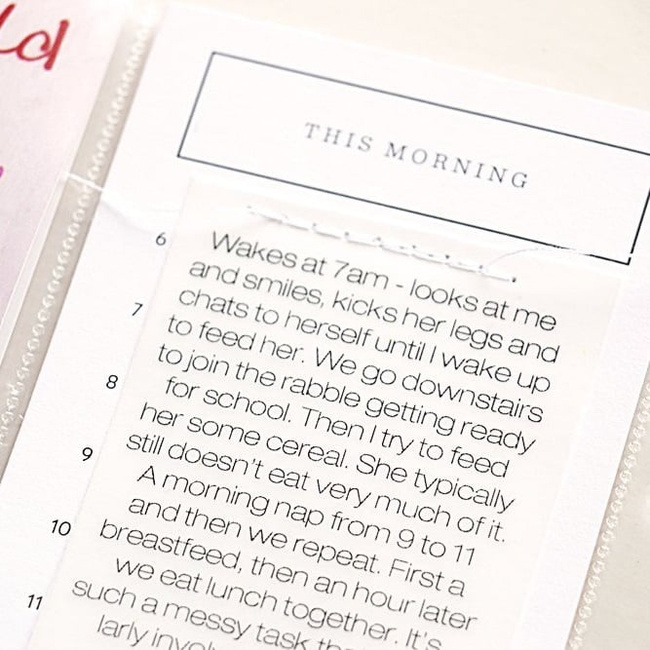 THIS MORNING
6
Wakes at 7am - looks at me
and smiles, kicks her legs and
7
chats to herself until I wake up
to feed her. We go downstairs
to join the rabble getting ready
8
for school. Then I try to feed
her some cereal. She typically
still doesn't eat very much of it.
9
A morning nap from 9 to 11
and then we repeat. First a
10
breastfeed, then an hour later
we eat lunch together. It's
11
such a messy task